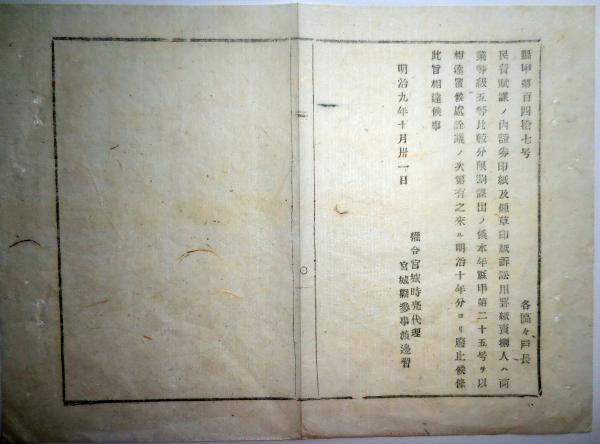 縣甲第百四拾七号
各區々戸長
民費賦課ノ内證券印紙及烟草印紙訴訟用罫紙賣捌人ハ商
業等級五等比較分限割課出ノ儀本年縣甲第二十五号ヲ以
相達置候處詮議ノ次第有之来ル明治十年分ヨリ廢止候條
此旨相達候事
明治九年十月卅一日
權令宮城時亮代理
宮城縣參事渡邊習